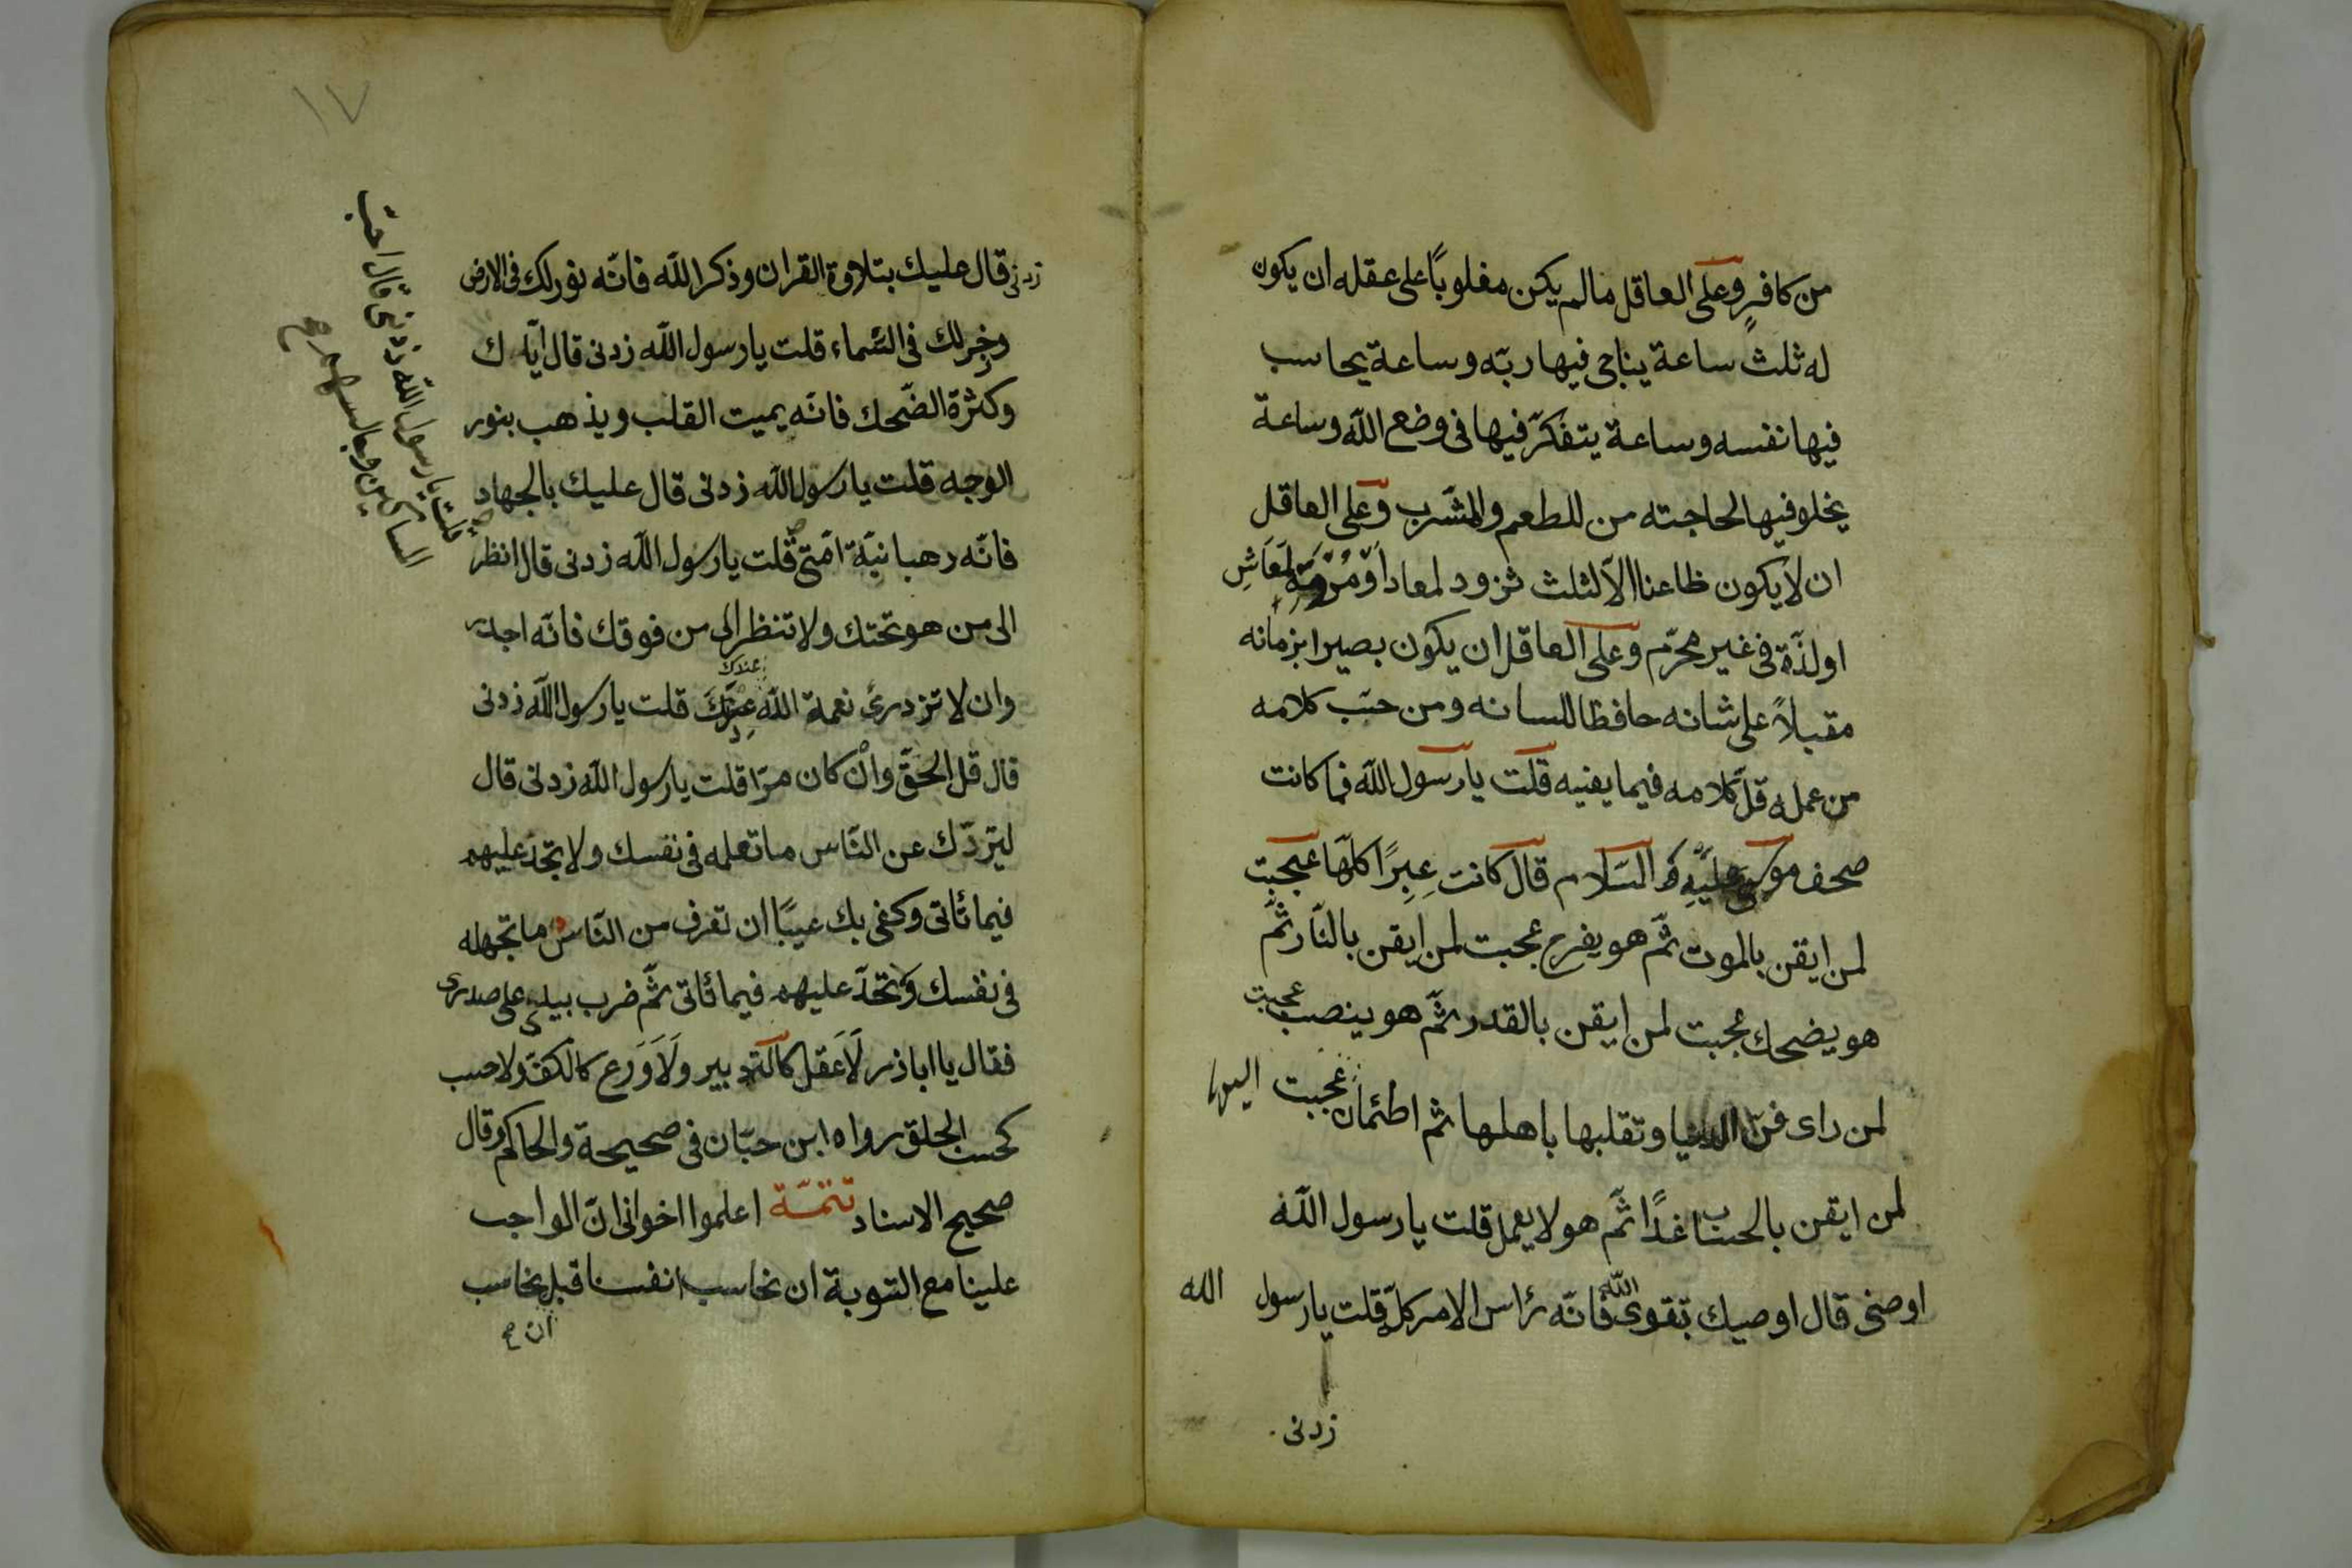 من كافرٍ وعلى العاقل مالم يكن مغلوبًا على عقله ان يكون
له ثلث ساعة يناجى فيها ربّه وساعة يحاسب
فيها نفسه وساعة يتفكّر فيها فى وضع اللّه وساعة
يخلو فيها لحاجته من للطعم والمشرب وعلى العاقل
ان لا يكون ظاعنا الاّ لثلث تزود لمعاد اَوْ مُرَمّة لمَعَاشِ
او لذّة فى غير محرّم وعلى العاقل ان يكون بصيرا بزمانه
مقبلاً على شانه حافظا للسانه ومن حسّب كلامه
من عمله قلّ كلامه فيما يعنيه قلت يا رسول اللّه فما كانت
صحف موسى عليه السّلام قال كانت عِبرًا كلّها عجبت
لمن ايقن بالموت ثمّ هو يفرح عجبت لمن ايقن بالنّار ثمّ
هو يضحك عجبت لمن ايقن بالقدر ثمّ هو ينصب عجبت
لمن راى الدنيا وتقلبها باهلها ثم اطمئان اليها عجبت
لمن ايقن بالحساب غدًا ثمّ هو لا يعمل قلت يا رسول اللّه
اوصنى قال اوصيك بتقوى اللّه فانّه رأس الامر كلّه قلت يا رسول الله
زدنى
١٧
زدنى قال عليك بتلاوة القران وذكر اللّه فانّه نور لك فى الارض
وذخر لك فى السّماء قلت يا رسول اللّه زدنى قال ايّاك
وكثرة الضّحك فانّه يميت القلب ويذهب بنور
الوجه قلت يا رسول اللّه زدنى قال عليك بالجهاد
فانّه رهبانيّة امّتى قلت يا رسول اللّه زدنى قال انظر
الى من هو تحتك ولا تنظر الى من فوقك فانّه اجدر
وان لا تزدرى نعمة اللّه عندك قلت يا رسول اللّه زدنى
عندك
قال قل الحقّ وانْ كان مرّا قلت يا رسول اللّه زدنى قال
ليردّك عن النّاس ما تعلمه فى نفسك ولا تجد عليهم
فيما تأتى وكفى بك عيبًا ان تعرف من النّاس ما تجهله
فى نفسك وتجد عليهم فيما تأتى ثمّ ضرب بيده على صدرى
فقال يا اباذر لَا عَقل كالتّدبير ولَا وَرع كالكفّ ولا حسب
كحسن الخلق رواه ابن حبّان فى صحيحة والحاكم وقال
صحيح الاسناد تتمّة اعلموا اخوانى انّ الواجب
علينا مع التّوبة ان نحاسب انفسنا قبل نحاسب
ان صح
قلت يا رسول اللّه زدنى قال احبّ
المساكين وجالسهم صح